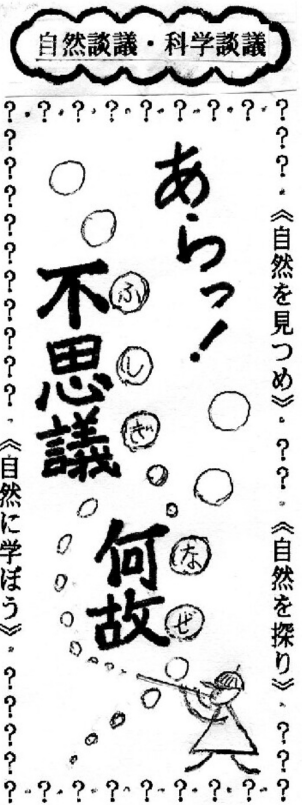 自然談議・科学談議
?・?・?・?・?・?・?・?・?
???・《自然を見つめ》・??・《自然を探り》・???
あらっ!
不思議
ふしぎ
何故
なぜ
????????????・《自然に学ぼう》・????
?・?・?・?・?・?・?・?・?